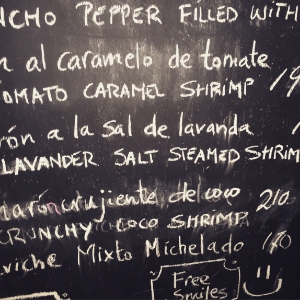 NCHO PEPPER FILLED WITH
n al caramelo de tomate
TOMATO CARAMEL SHRIMP 19
rón a la sal de lavanda
LAVANDER SALT STEAMED SHRIM
marón crujiente de coco 210
CRUNCHY COCO SHRIMP
viche Mixto Michelado 170
Free
Smiles